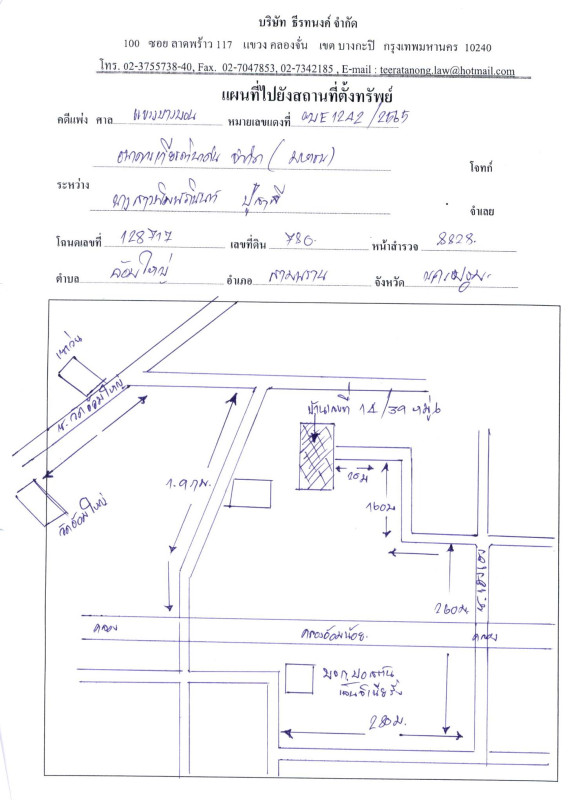 บริษัท ธีรทนงค์ จำกัด
100 ซอย ลาดพร้าว 117 แขวง คลองจั่น เขต บางกะปิ กรุงเทพมหานคร 10240
โทร. 02-3755738-40, Fax. 02-7047853, 02-7342185 , E-mail : teeratanong.law@hotmail.com
แผนที่ไปยังสถานที่ตั้งทรัพย์
คดีแพ่ง ศาล แขวงบางบอน หมายเลขแดงที่ ผบE1242/2565
ธนาคารเกียรตินาคิน จำกัด (มหาชน) โจทก์
ระหว่าง
นางสาว จำเลย
โฉนดเลขที่ 128717 เลขที่ดิน 780 หน้าสำรวจ 8828
ตำบล อ้อมใหญ่ อำเภอ สามพราน จังหวัด นครปฐม
ถ.วัดอ้อมใหญ่
บ้านเลขที่ 14/39 หมู่ 6
1.9 กม.
วัดอ้อมใหญ่
160ม
260ม
คลอง
คลองอ้อมน้อย
คลอง
280 ม.